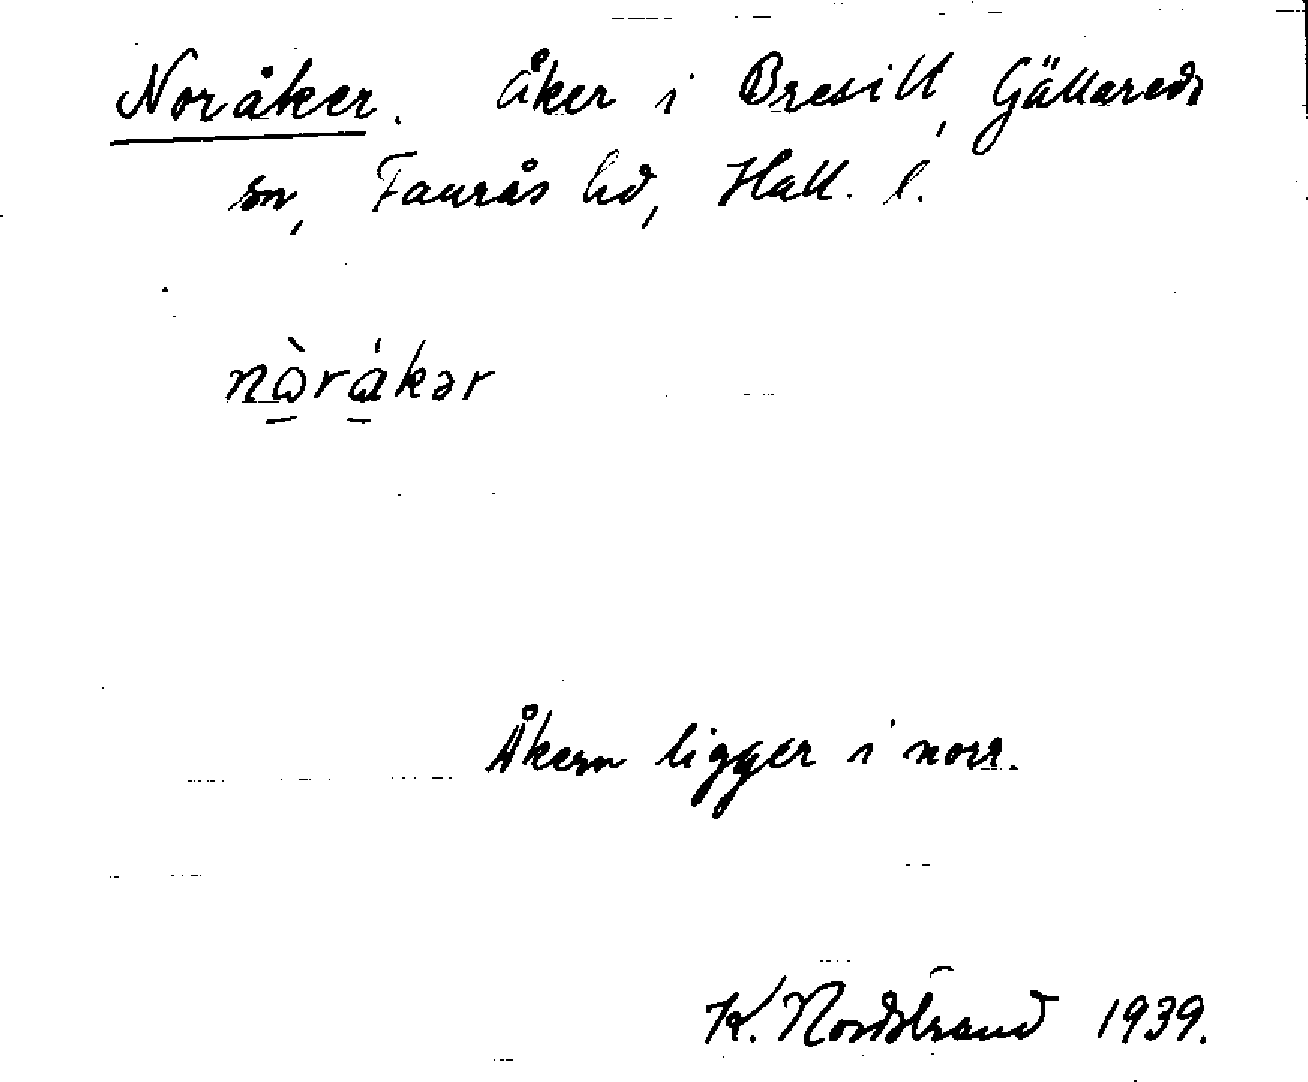 Noråker. Åker i Bresill, Gällareds
sn, Faurås hd, Hall. l.
nòrákər
Åkern ligger i norr.
K. Nordstrand 1939.